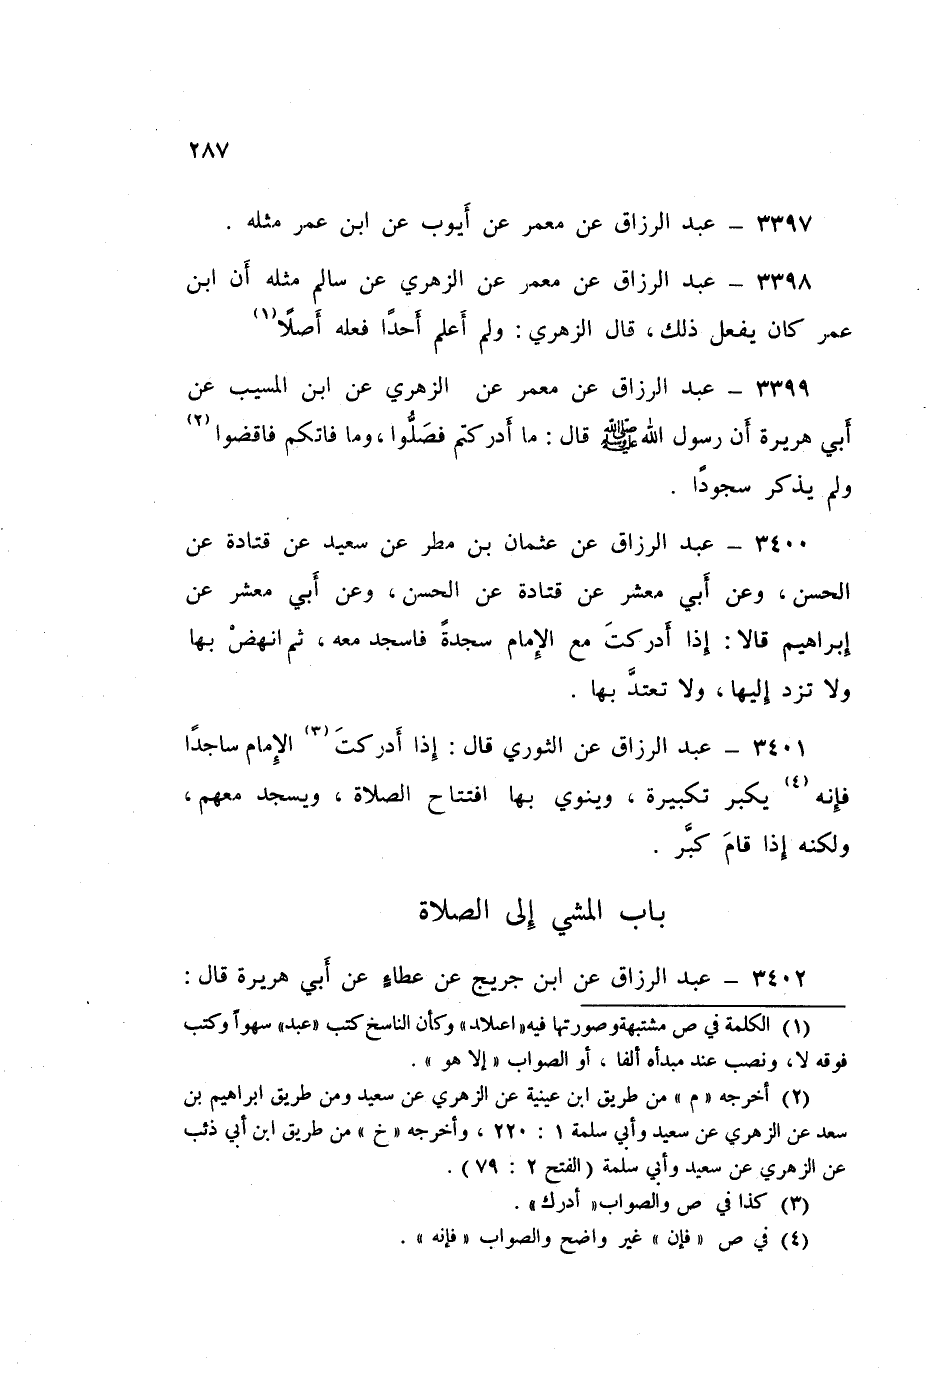 ٢٨٧
٣٣٩٧ – عبد الرزاق عن معمر عن أَيوب عن ابن عمر مثله .
٣٣٩٨ – عبد الرزاق عن معمر عن الزهري عن سالم مثله أَن ابن
عمر كان يفعل ذلك ، قال الزهري : ولم أَعلم أَحدًا فعله أَصلًا(١)
٣٣٩٩ – عبد الرزاق عن معمر عن الزهري عن ابن المسيب عن
أَبي هريرة أَن رسول الله ﷺ قال : ما أَدركتم فصَلُّوا ، وما فاتكم فاقضوا(٢)
ولم يذكر سجودًا .
٣٤٠٠ – عبد الرزاق عن عثمان بن مطر عن سعيد عن قتادة عن
الحسن ، وعن أَبي معشر عن قتادة عن الحسن ، وعن أَبي معشر عن
إِبراهيم قالا : إِذا أَدركتَ مع الإِمام سجدةً فاسجد معه ، ثم انهضْ بها
ولا تزد إِليها ، ولا تعتدَّ بها .
٣٤٠١ – عبد الرزاق عن الثوري قال : إِذا أَدركتَ(٣) الإِمام ساجدًا
فإِنه(٤) يكبر تكبيرة ، وينوي بها افتتاح الصلاة ، ويسجد معهم ،
ولكنه إِذا قامَ كبَّر .
باب المشي إِلى الصلاة
٣٤٠٢ – عبد الرزاق عن ابن جريج عن عطاءٍ عن أَبي هريرة قال :
(١) الكلمة في ص مشتبهة وصورتها فيه « اعبلاد » وكأن الناسخ كتب «عبد» سهواً وكتب
فوقه لا، ونصب عند مبدأه ألفا ، أو الصواب « إلا هو » .
(٢) أخرجه « م » من طريق ابن عيينة عن الزهري عن سعيد ومن طريق ابراهيم بن
سعد عن الزهري عن سعيد وأبي سلمة ١ : ٢٢٠ ، وأخرجه « خ » من طريق ابن أبي ذئب
عن الزهري عن سعيد وأبي سلمة ( الفتح ٢ : ٧٩ ) .
(٣) كذا في ص والصواب« أدرك» .
(٤) في ص « فإن » غير واضح والصواب « فإنه » .